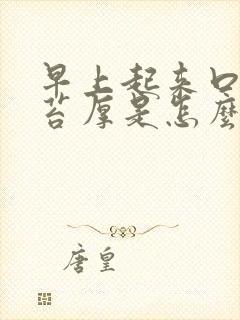 早上起来口
苔厚是怎麼
唐皇